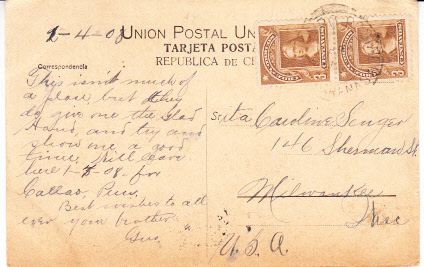 1-4-08
UNION POSTAL UN
TARJETA POSTA
REPUBLICA DE C
Correspondencia
This isn't much of
a place but they
do give one the glad
hand, and try and
show me a good
time. Will leave
here 1-8-08. for
Callao, Peru.
Best wishes to all
ever your brother
Gus
Srita Caroline Senger
146 Sherman St.
Milwaukee
Wisc
U.S.A.